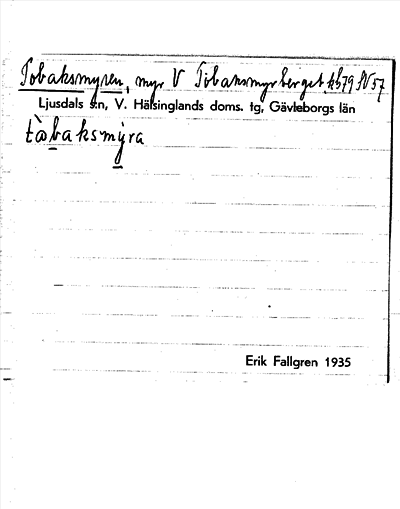 Tobaksmyren, myr V Tobaksmyrberget, kb 79 SV 57
Ljusdals sn, V. Hälsinglands doms. tg, Gävleborgs län
tòbaksmýra
Erik Fallgren 1935